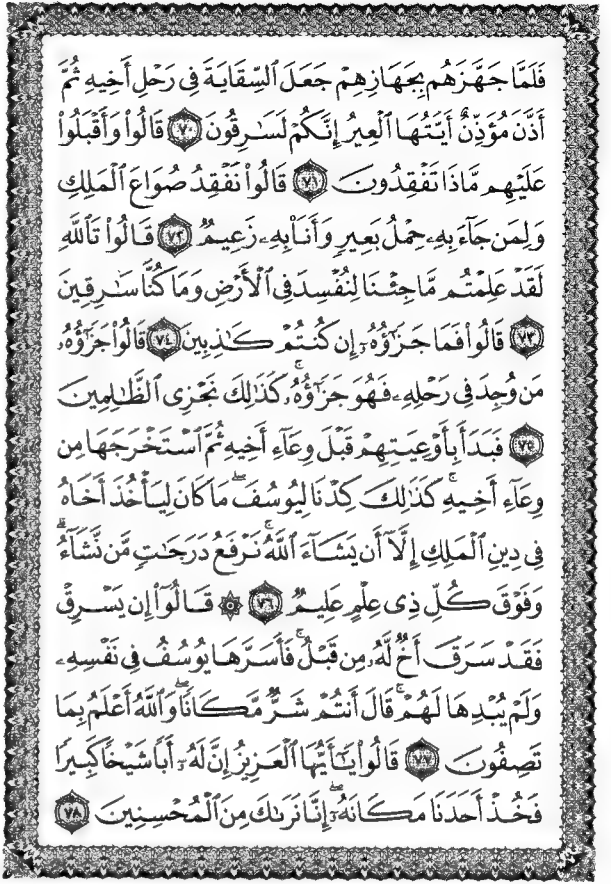 فَلَمَّا جَهَّزَهُم بِجَهَازِهِمْ جَعَلَ ٱلسِّقَايَةَ فِى رَحْلِ أَخِيهِ ثُمَّ
أَذَّنَ مُؤَذِّنٌ أَيَّتُهَا ٱلْعِيرُ إِنَّكُمْ لَسَـٰرِقُونَ ۝٧٠ قَالُوا۟ وَأَقْبَلُوا۟
عَلَيْهِم مَّاذَا تَفْقِدُونَ ۝٧١ قَالُوا۟ نَفْقِدُ صُوَاعَ ٱلْمَلِكِ
وَلِمَن جَآءَ بِهِۦ حِمْلُ بَعِيرٍ وَأَنَا۠ بِهِۦ زَعِيمٌ ۝٧٢ قَالُوا۟ تَٱللَّهِ
لَقَدْ عَلِمْتُم مَّا جِئْنَا لِنُفْسِدَ فِى ٱلْأَرْضِ وَمَا كُنَّا سَـٰرِقِينَ
۝٧٣ قَالُوا۟ فَمَا جَزَٰٓؤُهُۥٓ إِن كُنتُمْ كَـٰذِبِينَ ۝٧٤ قَالُوا۟ جَزَٰٓؤُهُۥ
مَن وُجِدَ فِى رَحْلِهِۦ فَهُوَ جَزَٰٓؤُهُۥ ۚ كَذَٰلِكَ نَجْزِى ٱلظَّـٰلِمِينَ
۝٧٥ فَبَدَأَ بِأَوْعِيَتِهِمْ قَبْلَ وِعَآءِ أَخِيهِ ثُمَّ ٱسْتَخْرَجَهَا مِن
وِعَآءِ أَخِيهِ ۚ كَذَٰلِكَ كِدْنَا لِيُوسُفَ ۖ مَا كَانَ لِيَأْخُذَ أَخَاهُ
فِى دِينِ ٱلْمَلِكِ إِلَّآ أَن يَشَآءَ ٱللَّهُ ۚ نَرْفَعُ دَرَجَـٰتٍ مَّن نَّشَآءُ ۗ
وَفَوْقَ كُلِّ ذِى عِلْمٍ عَلِيمٌ ۝٧٦ ۞ قَالُوٓا۟ إِن يَسْرِقْ
فَقَدْ سَرَقَ أَخٌ لَّهُۥ مِن قَبْلُ ۚ فَأَسَرَّهَا يُوسُفُ فِى نَفْسِهِۦ
وَلَمْ يُبْدِهَا لَهُمْ ۚ قَالَ أَنتُمْ شَرٌّ مَّكَانًا ۖ وَٱللَّهُ أَعْلَمُ بِمَا
تَصِفُونَ ۝٧٧ قَالُوا۟ يَـٰٓأَيُّهَا ٱلْعَزِيزُ إِنَّ لَهُۥٓ أَبًا شَيْخًا كَبِيرًا
فَخُذْ أَحَدَنَا مَكَانَهُۥٓ ۖ إِنَّا نَرَىٰكَ مِنَ ٱلْمُحْسِنِينَ ۝٧٨